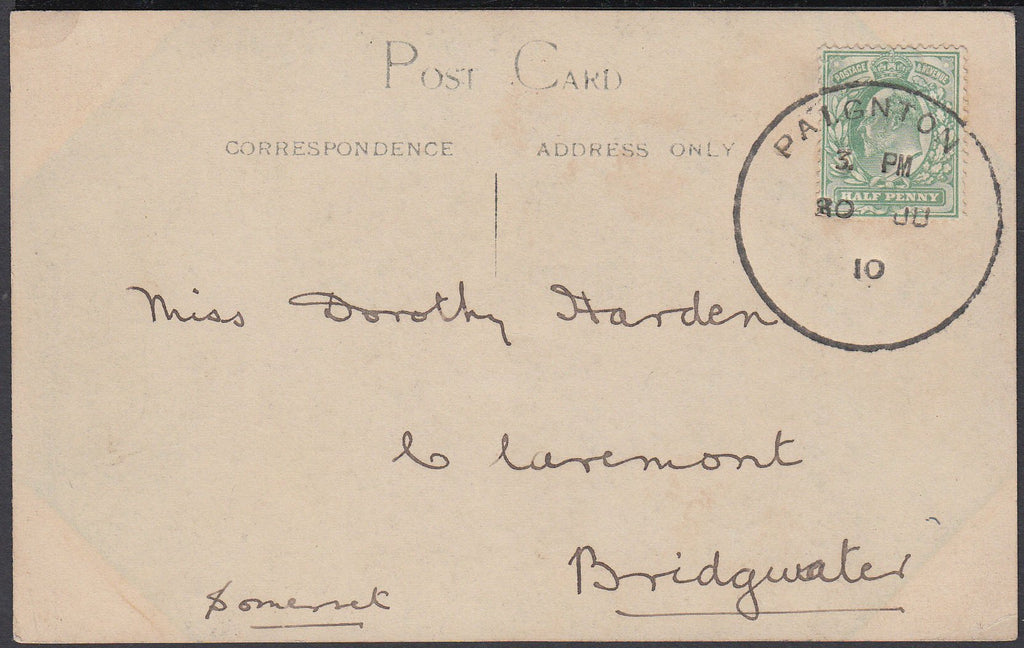 POST CARD
POSTAGE & REVENUE
CORRESPONDENCE
ADDRESS ONLY
PAIGNTON
3 PM
30 JU
10
HALF PENNY
Miss Dorothy Harden
Claremont
Bridgwater
Somerset